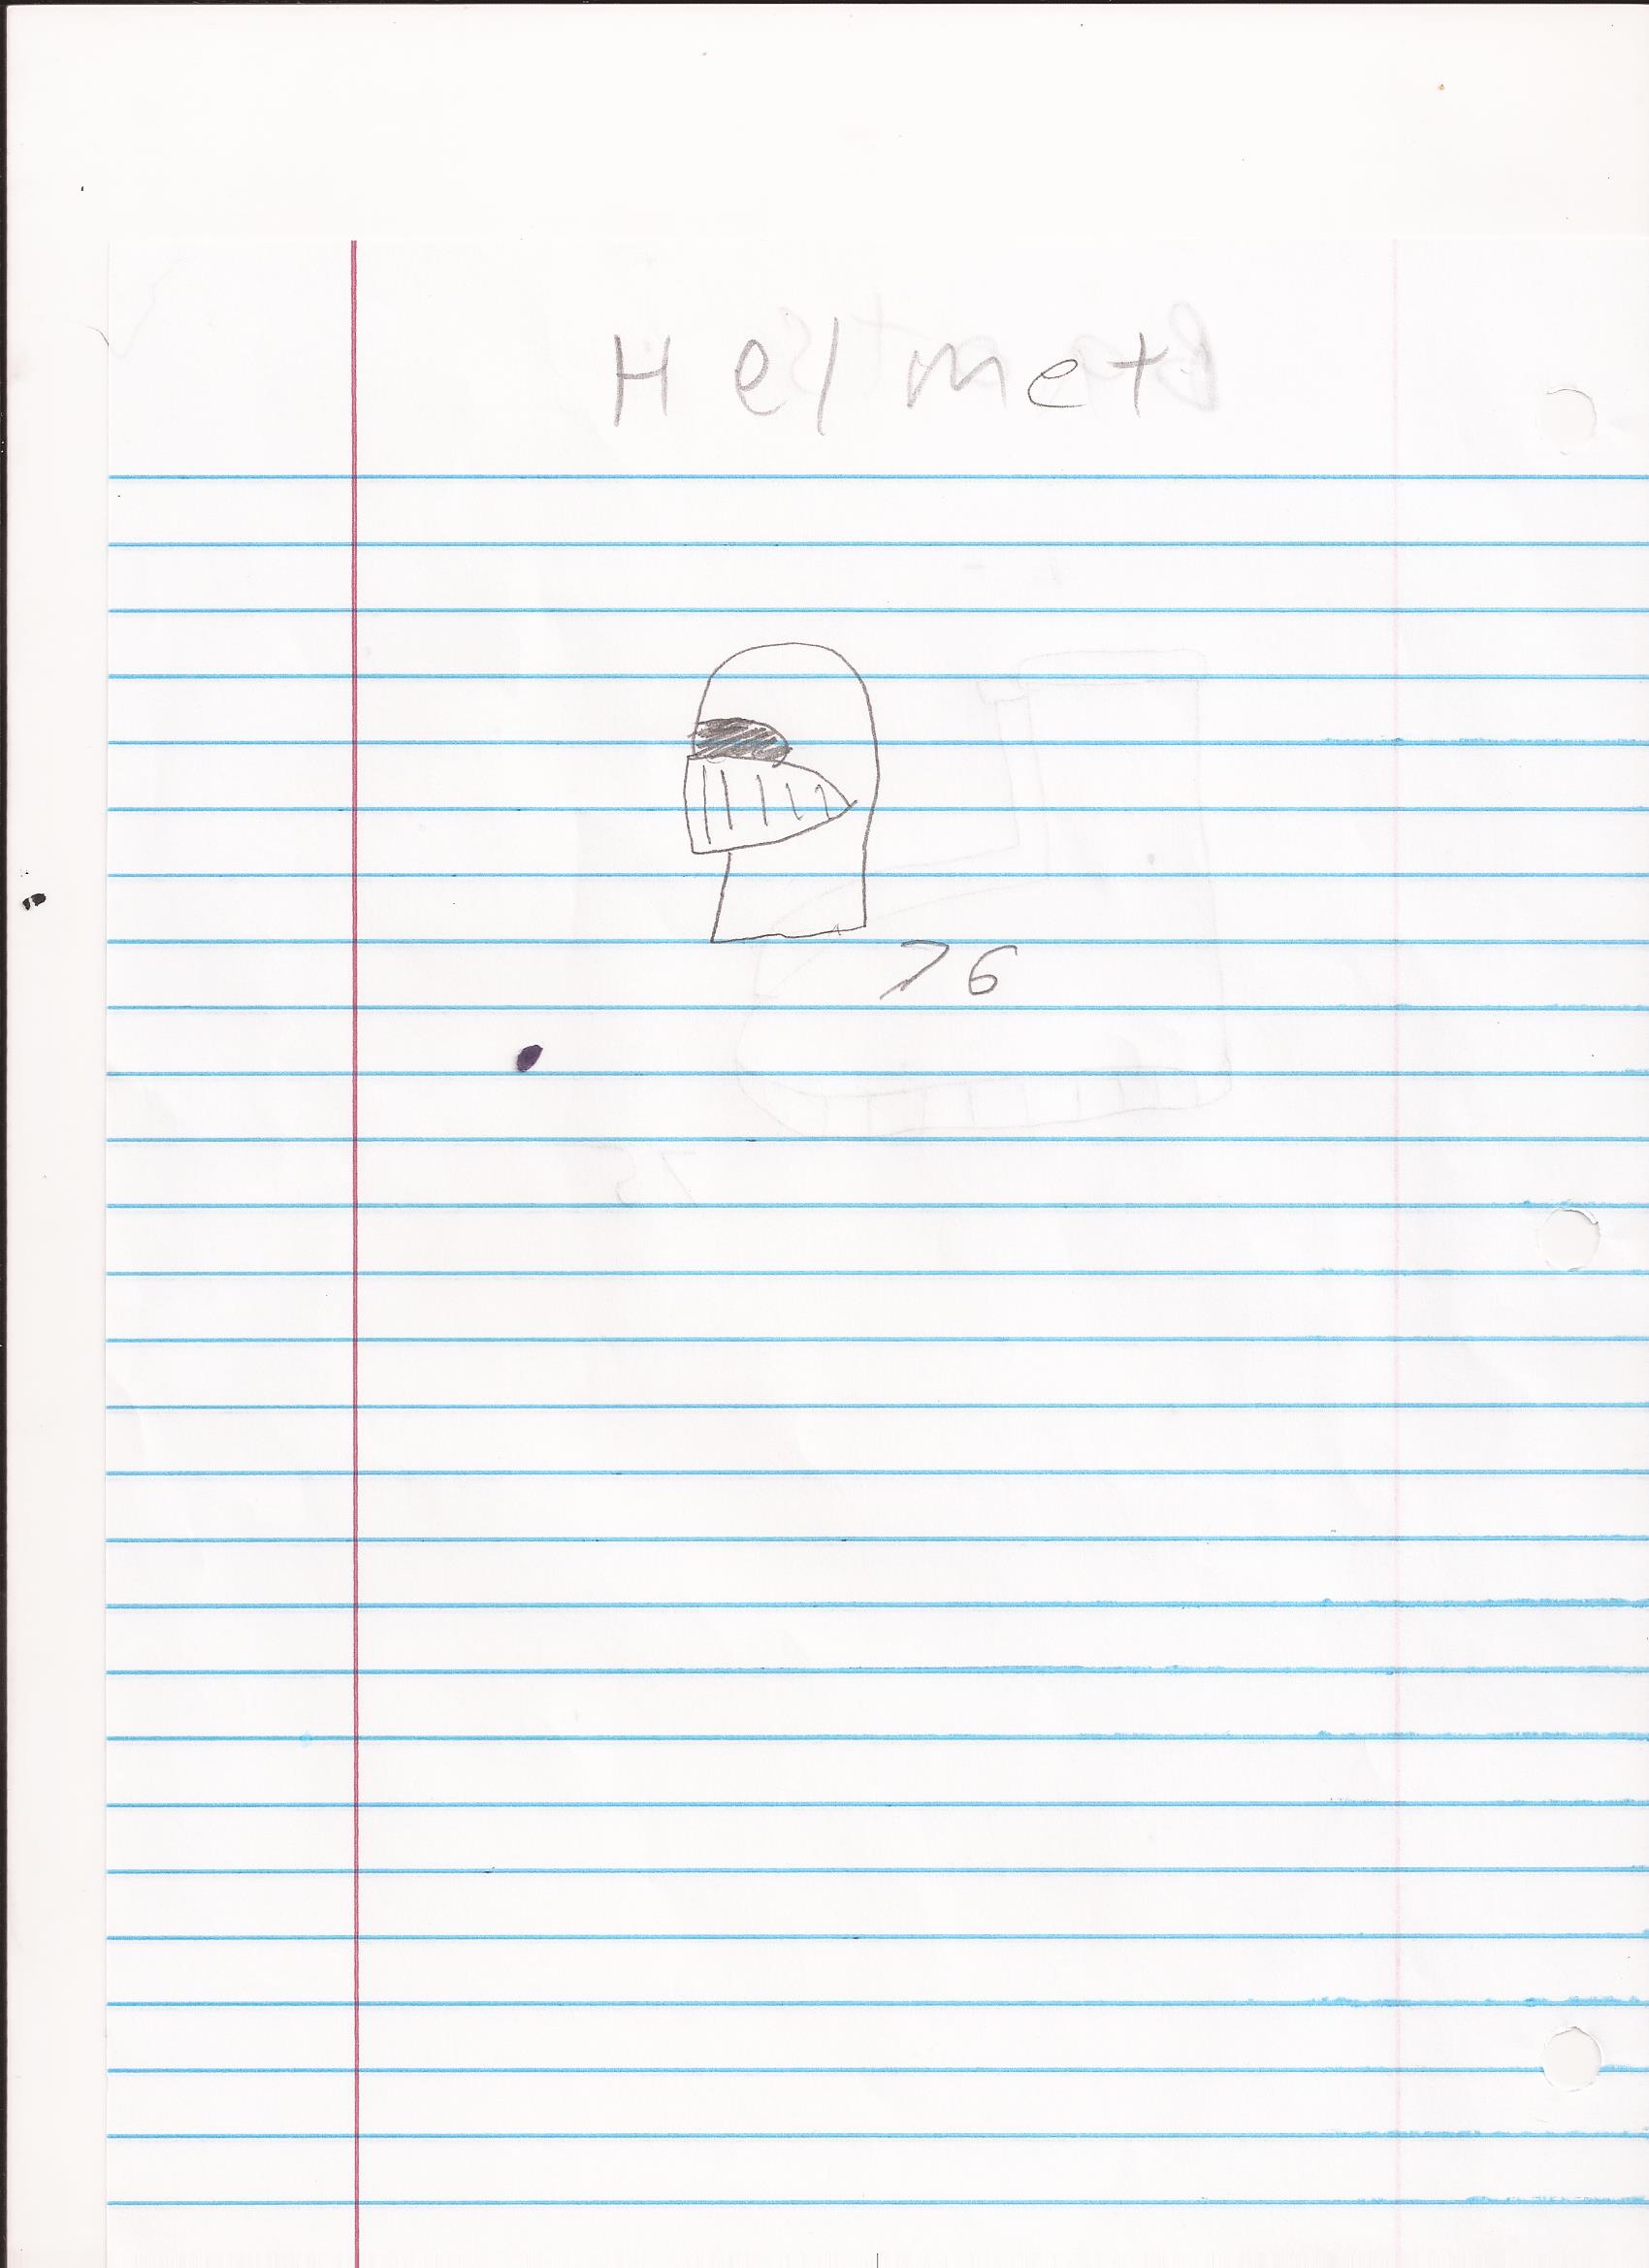 Helmet
76